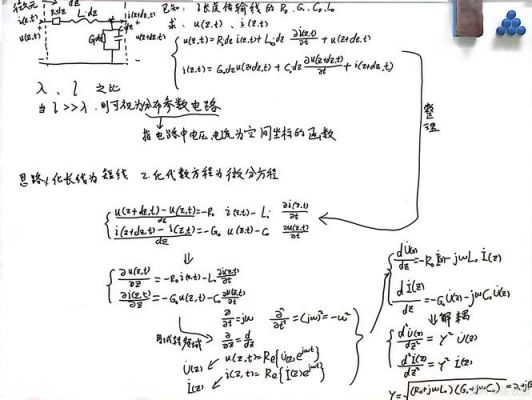 已知: 1长度传输线的 R₀, G₀, C₀, L₀
求: u(z,t), i(z,t)
i(z,t) R₀dz L₀dz i(z+dz,t)
u(z,t) G₀dz u(z+dz,t)
u(z,t) = R₀dz i(z,t) + L₀dz ∂i(z,t)/∂t + u(z+dz,t)
i(z,t) = G₀dz u(z+dz,t) + C₀dz ∂u(z+dz,t)/∂t + i(z+dz,t)
λ, l 之比
当 l >> λ, 则可视为分布参数电路
指电路中电压,电流为空间坐标的函数
整理
思路 1.化长线为短线 2.化代数方程为微分方程
u(z+dz,t) - u(z,t) / dz = -R₀ i(z,t) - L₀ ∂i(z,t)/∂t
i(z+dz,t) - i(z,t) / dz = -G₀ u(z,t) - C₀ ∂u(z,t)/∂t
∂u(z,t)/∂z = -R₀ i(z,t) - L₀ ∂i(z,t)/∂t
∂i(z,t)/∂z = -G₀ u(z,t) - C₀ ∂u(z,t)/∂t
∂/∂t = jω ∂²/∂t² = (jω)² = -ω²
∂/∂z = d/dz
U̇(z) u(z,t) = Re{U̇(z)e^jωt}
İ(z) i(z,t) = Re{İ(z)e^jωt}
dU̇(z)/dz = -R₀İ(z) - jωL₀ İ(z)
dİ(z)/dz = -G₀U̇(z) - jωC₀ U̇(z)
解耦
d²U̇(z)/dz² = γ² U̇(z)
d²İ(z)/dz² = γ² İ(z)
γ = √(R₀+jωL₀)(G₀+jωC₀) = α+jβ